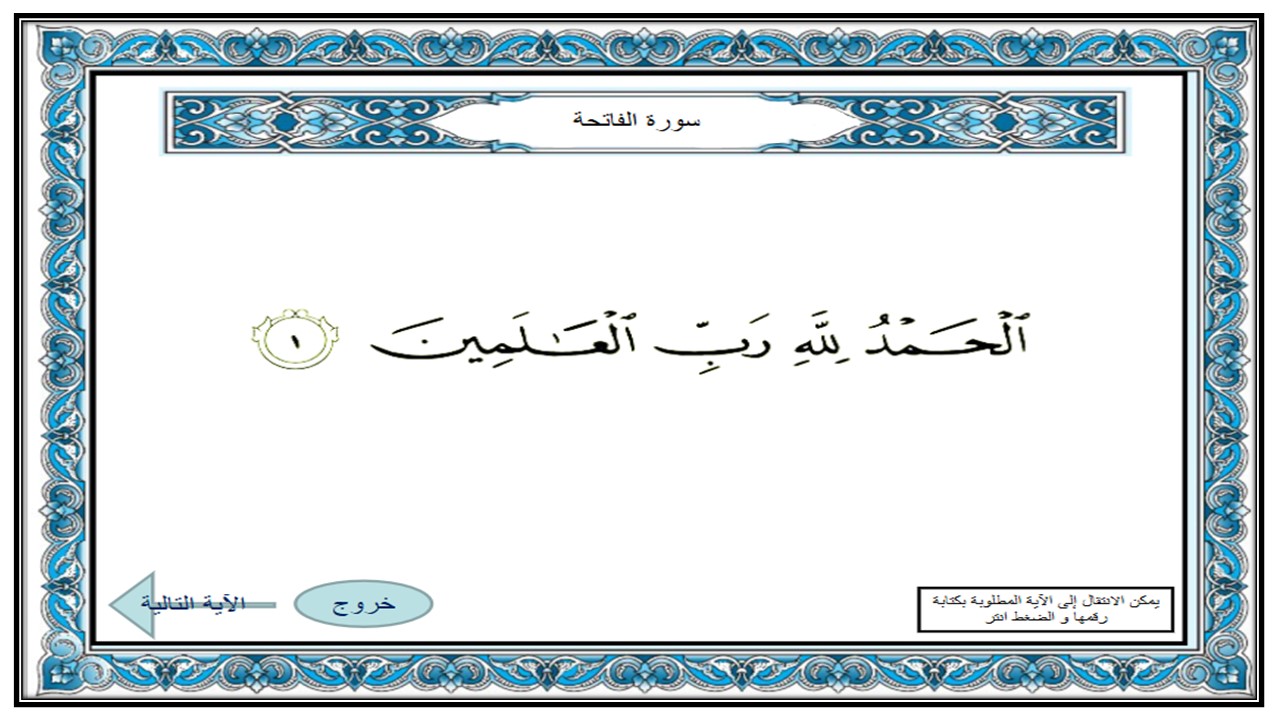 سورة الفاتحة
ٱلْحَمْدُ لِلَّهِ رَبِّ ٱلْعَـٰلَمِينَ ١
يمكن الانتقال إلى الآية المطلوبة بكتابة
رقمها و الضغط انتر
خروج
الآية التالية